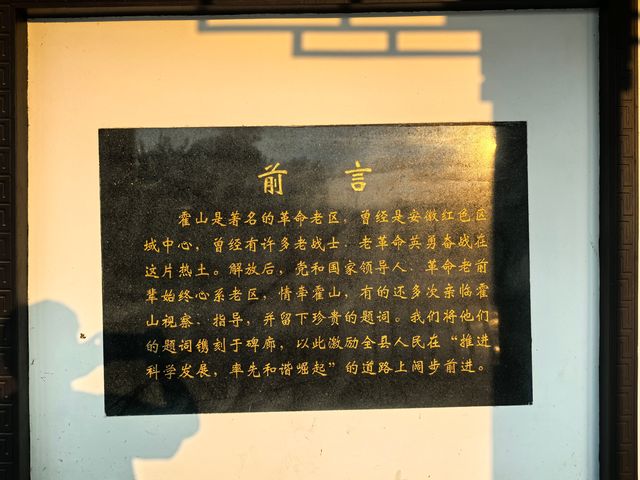 前言
霍山是著名的革命老区，曾经是安徽红色区
域中心，曾经有许多老战士、老革命英勇奋战在
这片热土。解放后，党和国家领导人、革命老前
辈始终心系老区，情牵霍山，有的还多次亲临霍
山视察、指导，并留下珍贵的题词。我们将他们
的题词镌刻于碑廊，以此激励全县人民在“推进
科学发展，率先和谐崛起”的道路上阔步前进。